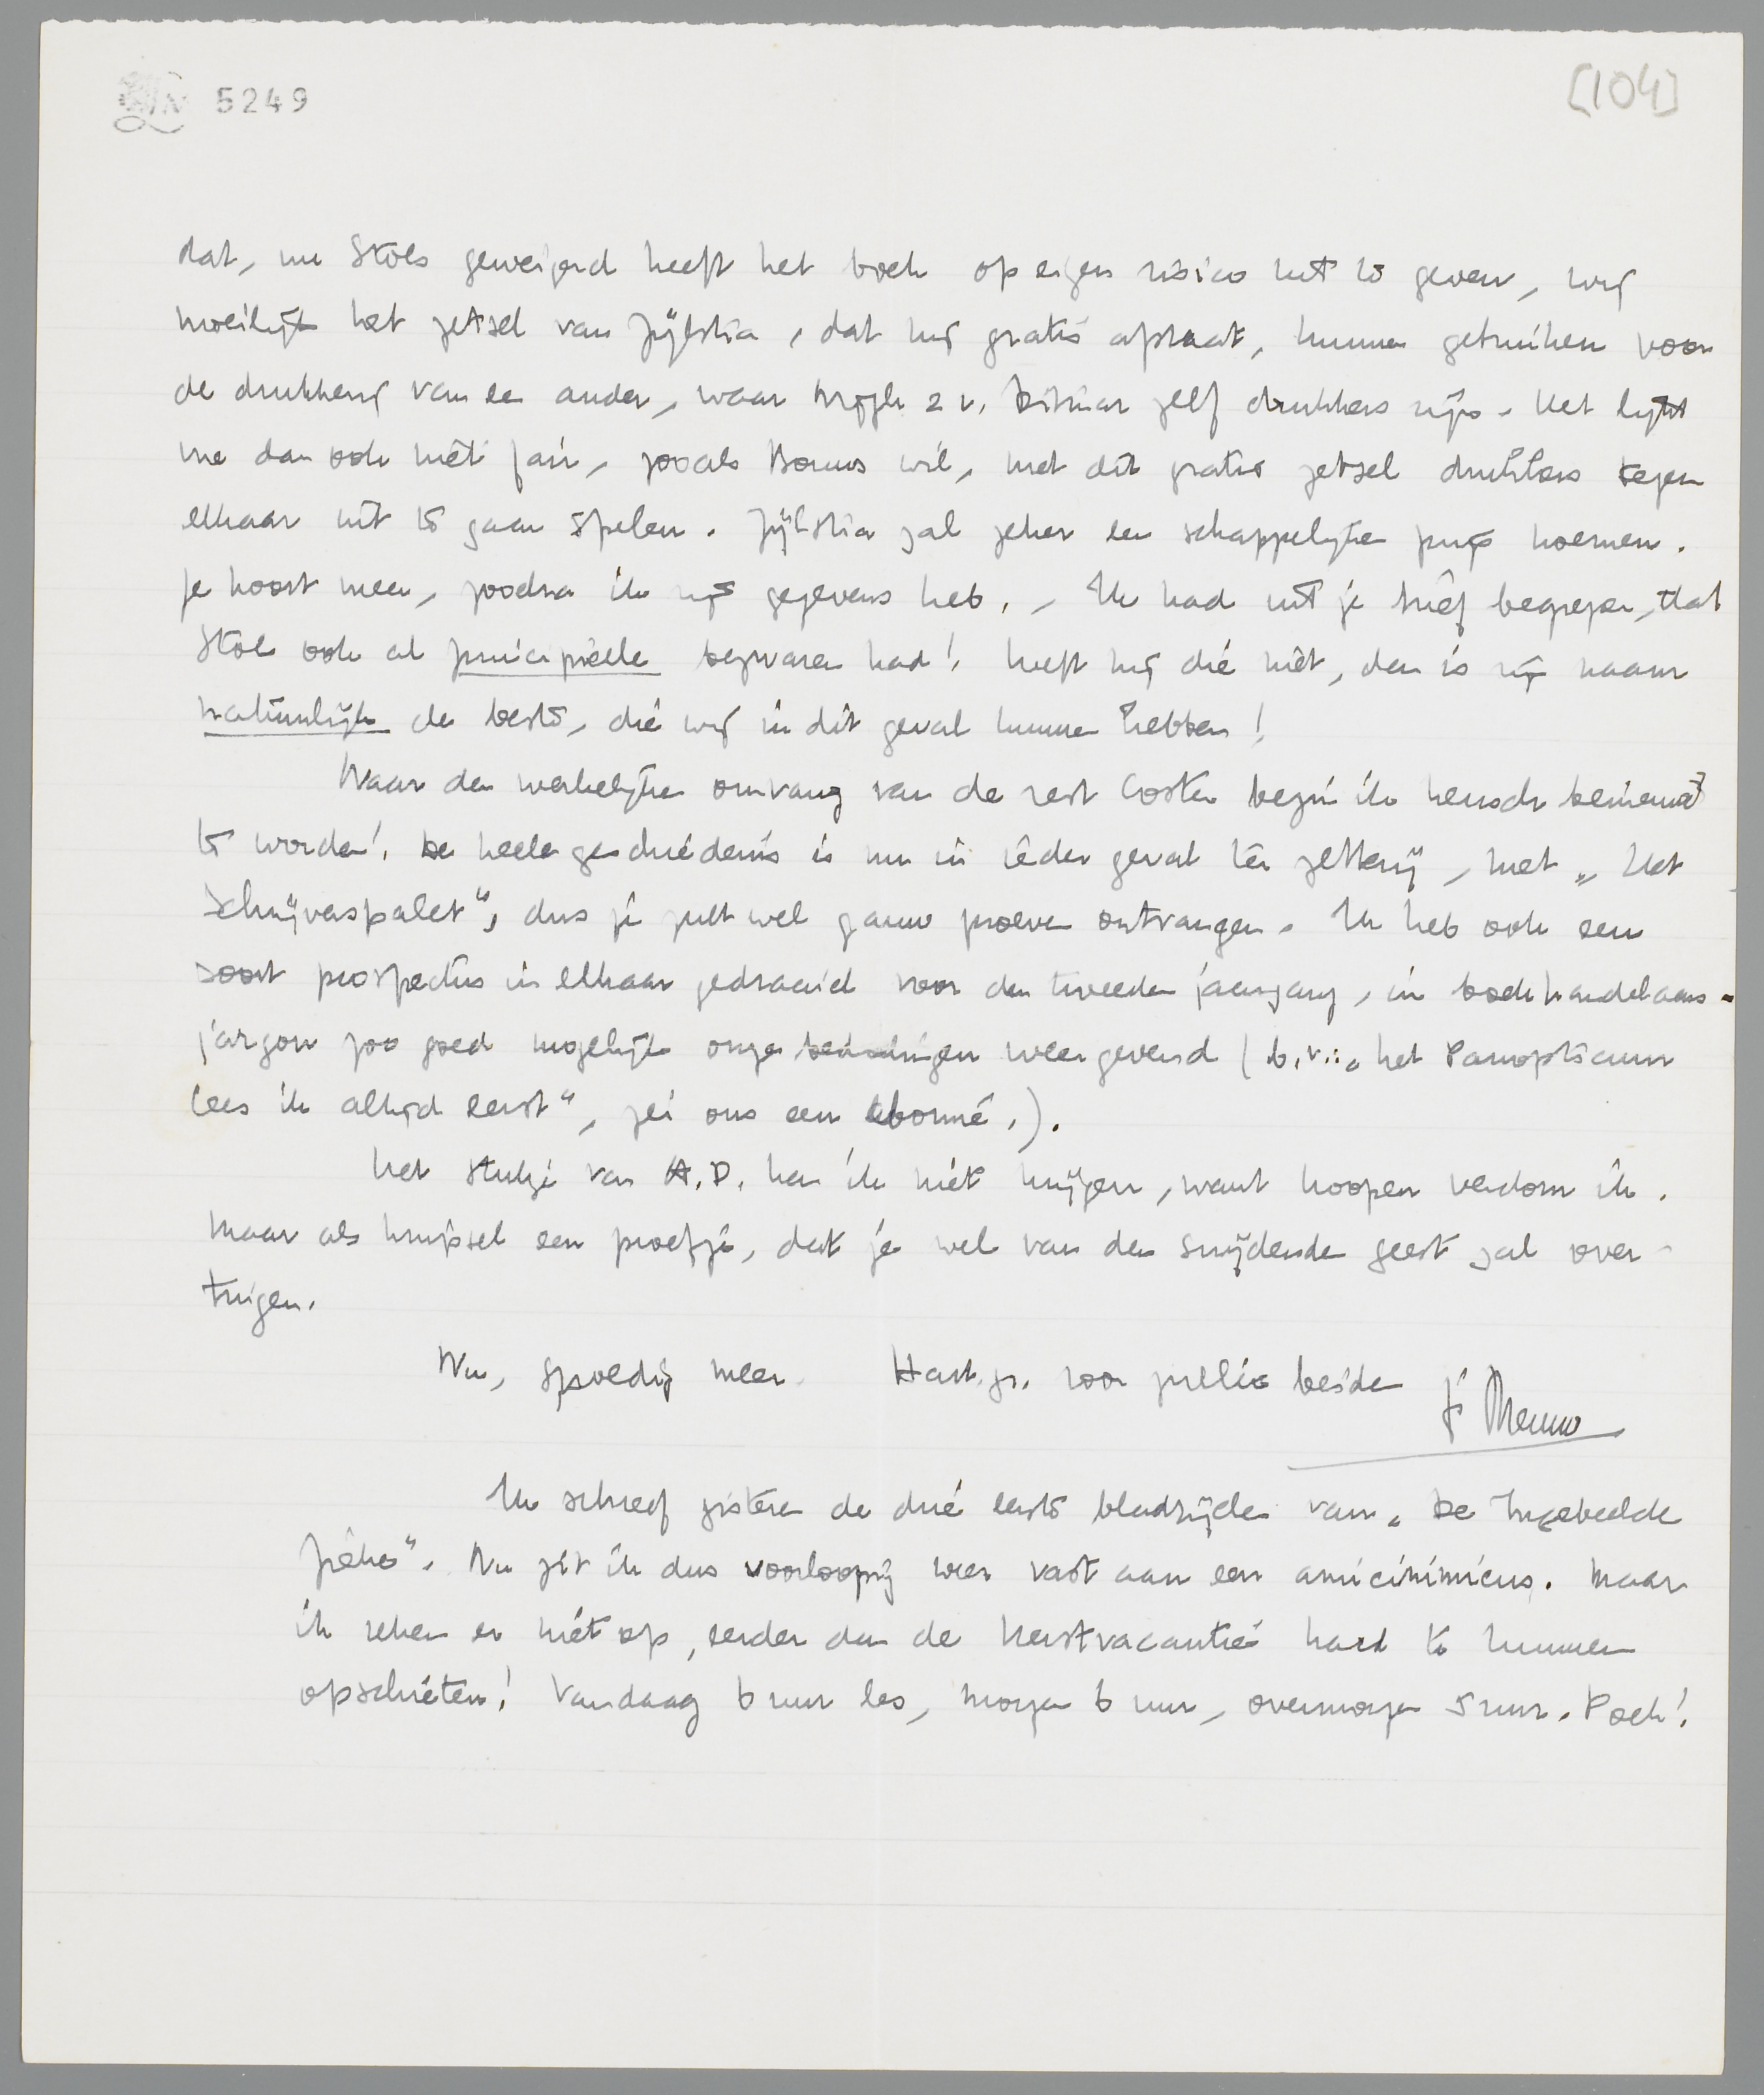 5249
[104]
dat, nu Stols geweigerd heeft het boek op eigen risico uit te geven, wij
moeilijk het zetsel van Zijlstra, dat hij gratis afstaat, kunnen gebruiken voor
de drukkerij van een ander, waar Nijgh & v. Ditmar zelf drukkers zijn. Het lijkt
me dan ook niet fair, zooals Bouws wil, met dit gratis zetsel drukkers tegen
elkaar uit te gaan spelen. Zijlstra zal zeker een schappelijken prijs noemen.
Je hoort meer, zoodra ik zijn gegevens heb. – Ik had uit je brief begrepen, dat
Stols ook al principieele bezwaren had! heeft hij die niet, dan is zijn naam
natuurlijk de beste, die wij in dit geval kunnen hebben!
Naar den werkelijken omvang van de rest Coster begin ik heusch benieuwd
te worden! De heele geschiedenis is nu in ieder geval ter zetterij, met „Het
Schrijverspalet", dus je zult wel gauw proeven ontvangen. Ik heb ook een
soort prospectus in elkaar gedraaid voor den tweeden jaargang, in boekhandelaars-
jargon zoo goed mogelijk onze bedoelingen weergevend (b.v.: „het Panopticum
lees ik altijd eerst", zei ons een abonné.).
Het stukje van A.D. kan ik niet krijgen, want koopen verdom ik.
Maar als knipsel een proefje, dat je wel van den snijdenden geest zal over-
tuigen.
Nu, spoedig meer. Hart. gr. voor jullie beiden
je Menno
Ik schreef gisteren de drie eerste bladzijden van „De Ingebeelde
Zieke". Nu zit ik dus voorloopig weer vast aan een amicinimicus. Maar
ik reken er niet op, eerder dan de kerstvacantie hard te kunnen
opschieten! Vandaag 6 uur les, morgen 6 uur, overmorgen 5 uur. Poeh!